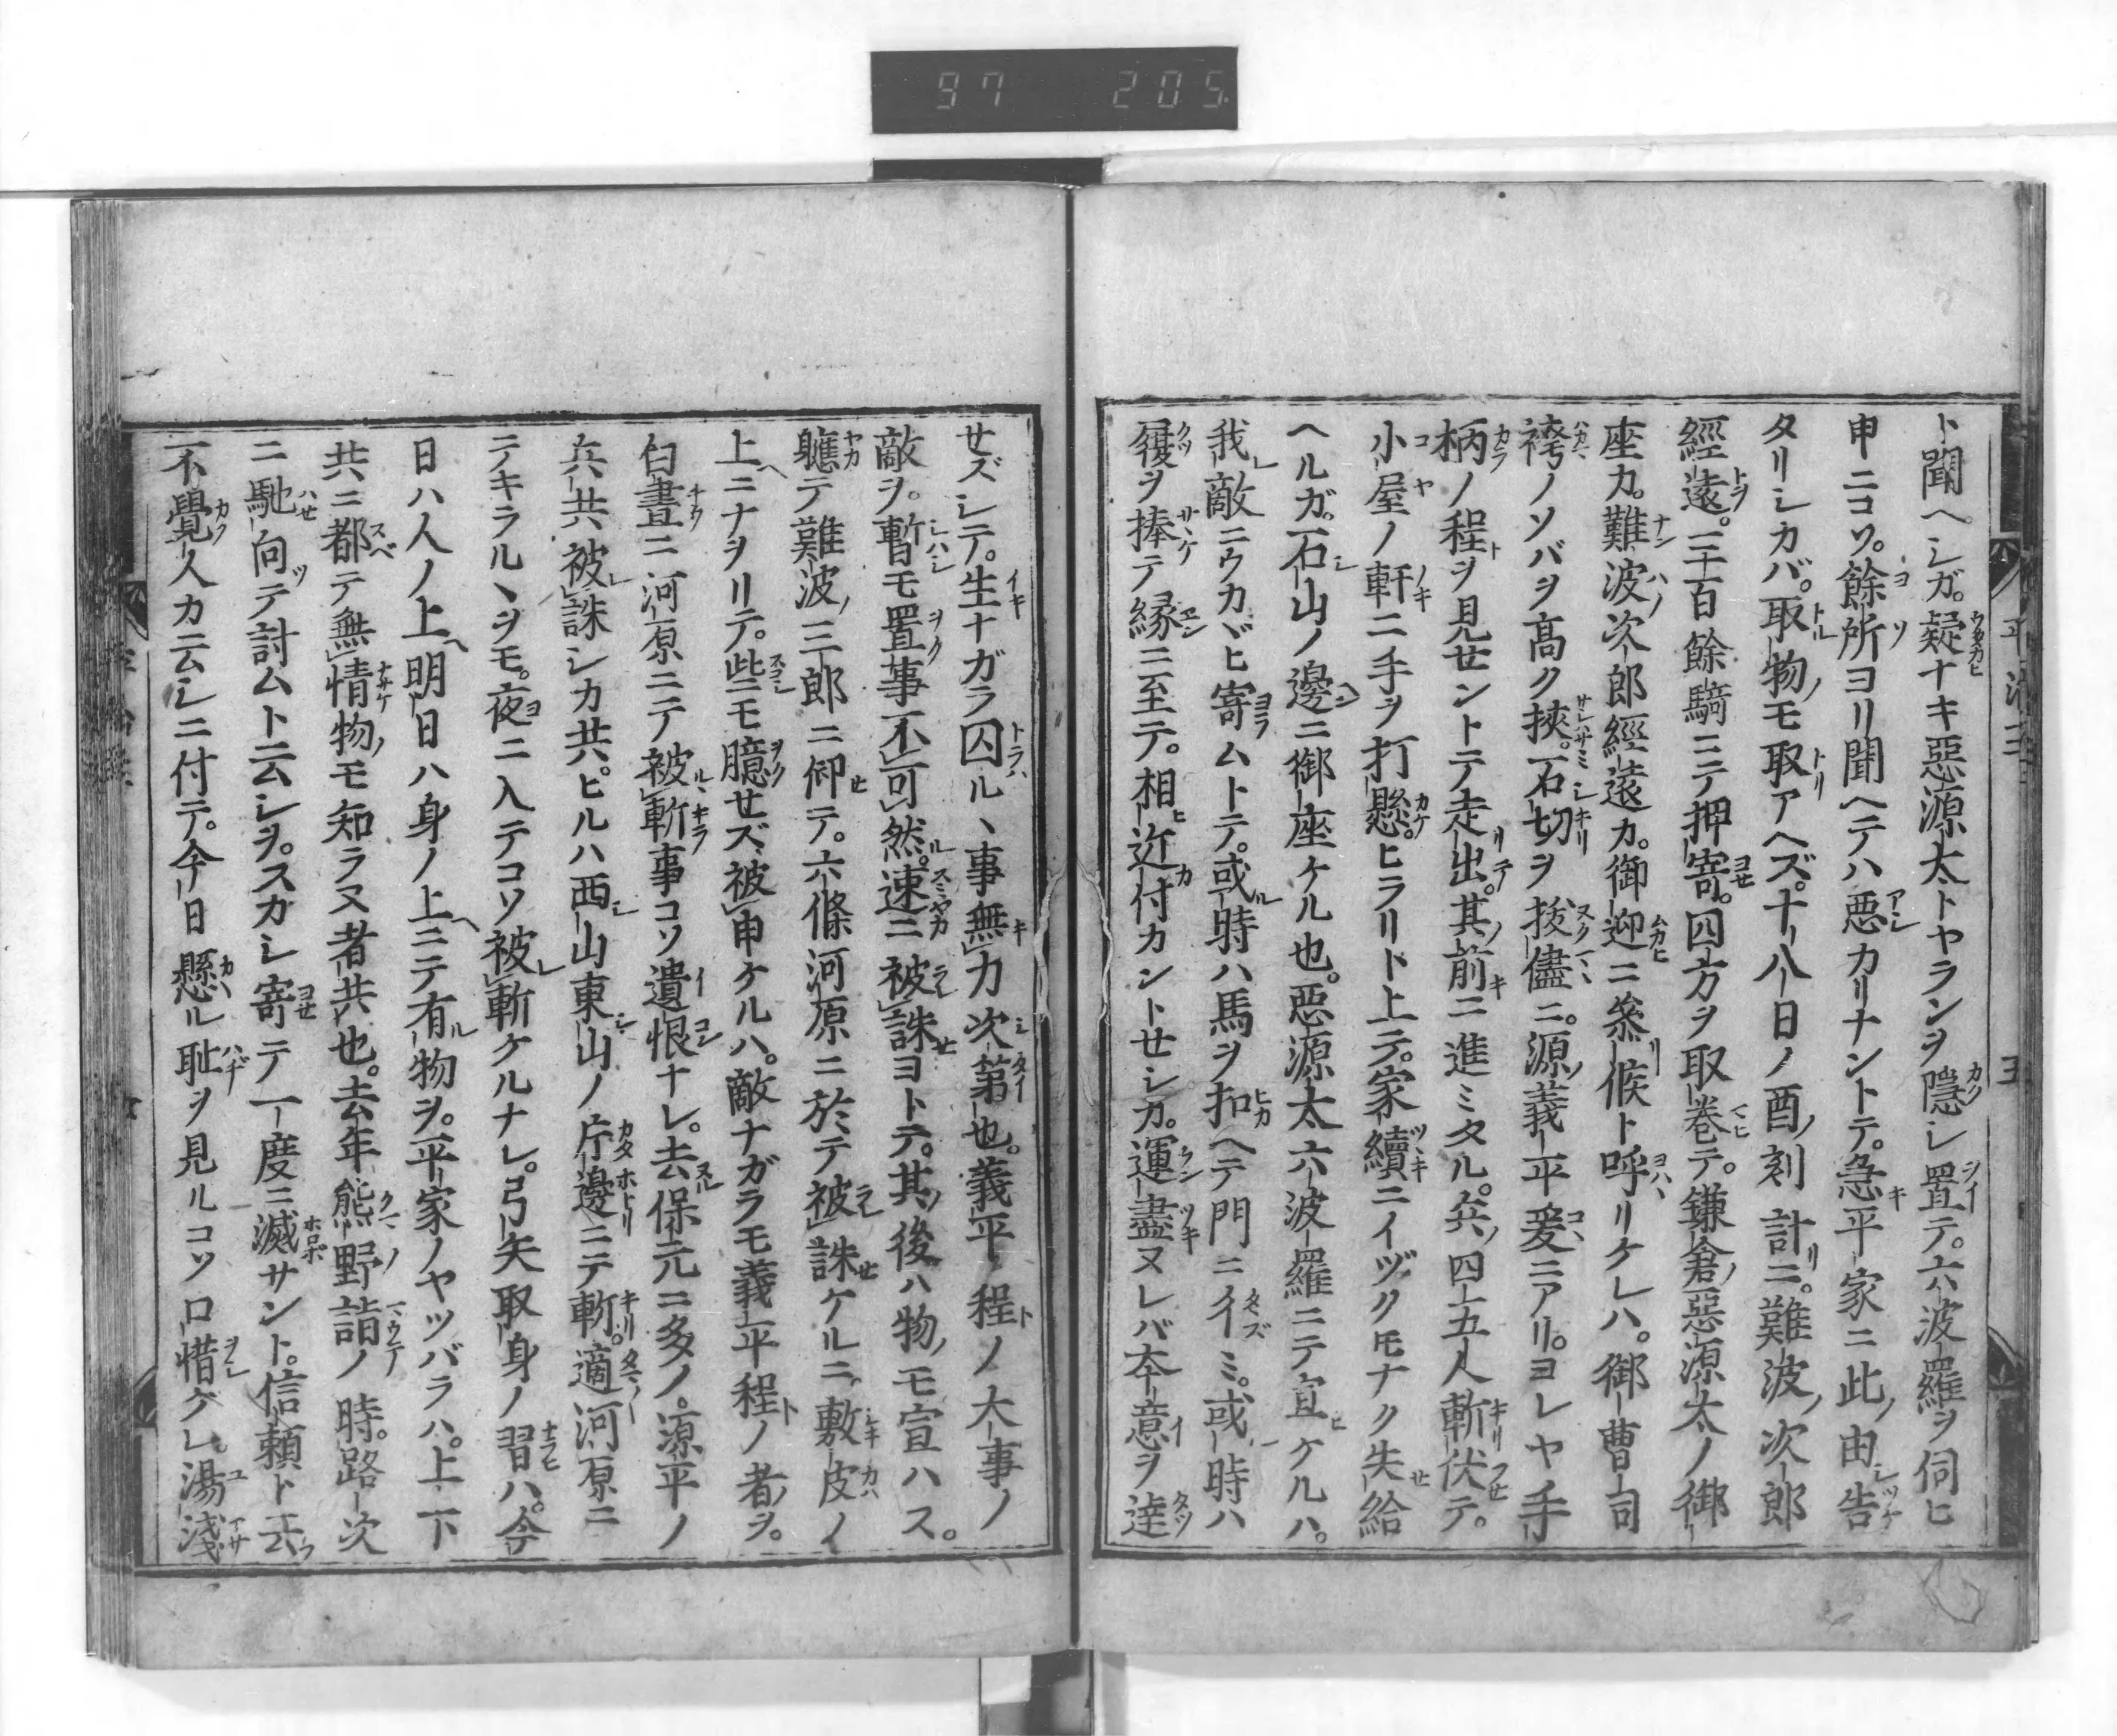 97 205
平治三 五
ト聞ヘシガ。疑ナキ惡源太トヤランヲ隱シ置テ。六波羅ヲ伺ヒ
申ニコソ。餘所ヨリ聞ヘテハ悪カリナントテ。急平家ニ此由告
タリシカバ。取物モ取アヘズ。十八日ノ酉刻計ニ。難波次郎
經遠。三百餘騎ニテ押寄。四方ヲ取卷テ。鎌倉惡源太ノ御
座カ。難波次郎經遠カ。御迎ニ參候ト呼リケレハ。御曹司
袴ノソバヲ高ク挾。石切ヲ拔儘ニ。源義平爰ニアリ。ヨレヤ手
柄ノ程ヲ見セントテ走出。其前ニ進ミタル。兵四五人斬伏テ。
小屋ノ軒ニ手ヲ打懸。ヒラリト上テ。家續ニイヅクモナク失給
ヘルガ。石山ノ邊ニ御座ケル也。惡源太六波羅ニテ宣ケルハ。
我敵ニウカヾヒ寄ムトテ。或時ハ馬ヲ扣ヘテ門ニイミ。或時ハ
履ヲ捧テ縁ニ至テ。相近付カントセシカ。運盡ヌレバ本意ヲ達
セズシテ。生ナガラ囚ルヽ事無力次第也。義平程ノ大事ノ
敵ヲ。暫モ置事不可然。速ニ被誅ヨトテ。其後ハ物モ宣ハス。
軈テ難波三郎ニ仰テ。六條河原ニ於テ被誅ケルニ。敷皮ノ
上ニナヲリテ。些モ臆セズ被申ケルハ。敵ナガラモ義平程ノ者ヲ。
白晝ニ河原ニテ被斬事コソ遺恨ナレ。去保元ニ多ノ源平ノ
兵共被誅シカ共。ヒルハ西山東山ノ片邊ニテ斬。適河原ニ
テキラルヽヲモ。夜ニ入テコソ被斬ケルナレ。弓矢取身ノ習ハ。今
日ハ人ノ上明日ハ身ノ上ニテ有物ヲ。平家ノヤツバラハ。上下
共ニ都テ無情物モ知ラヌ者共也。去年熊野詣ノ時。路次
ニ馳向テ討ムト云シヲ。スカシ寄テ一度ニ滅サント。信頼ト云
不覺人カ云シニ付テ。今日懸ル耻ヲ見ルコソ口惜ケレ。湯淺